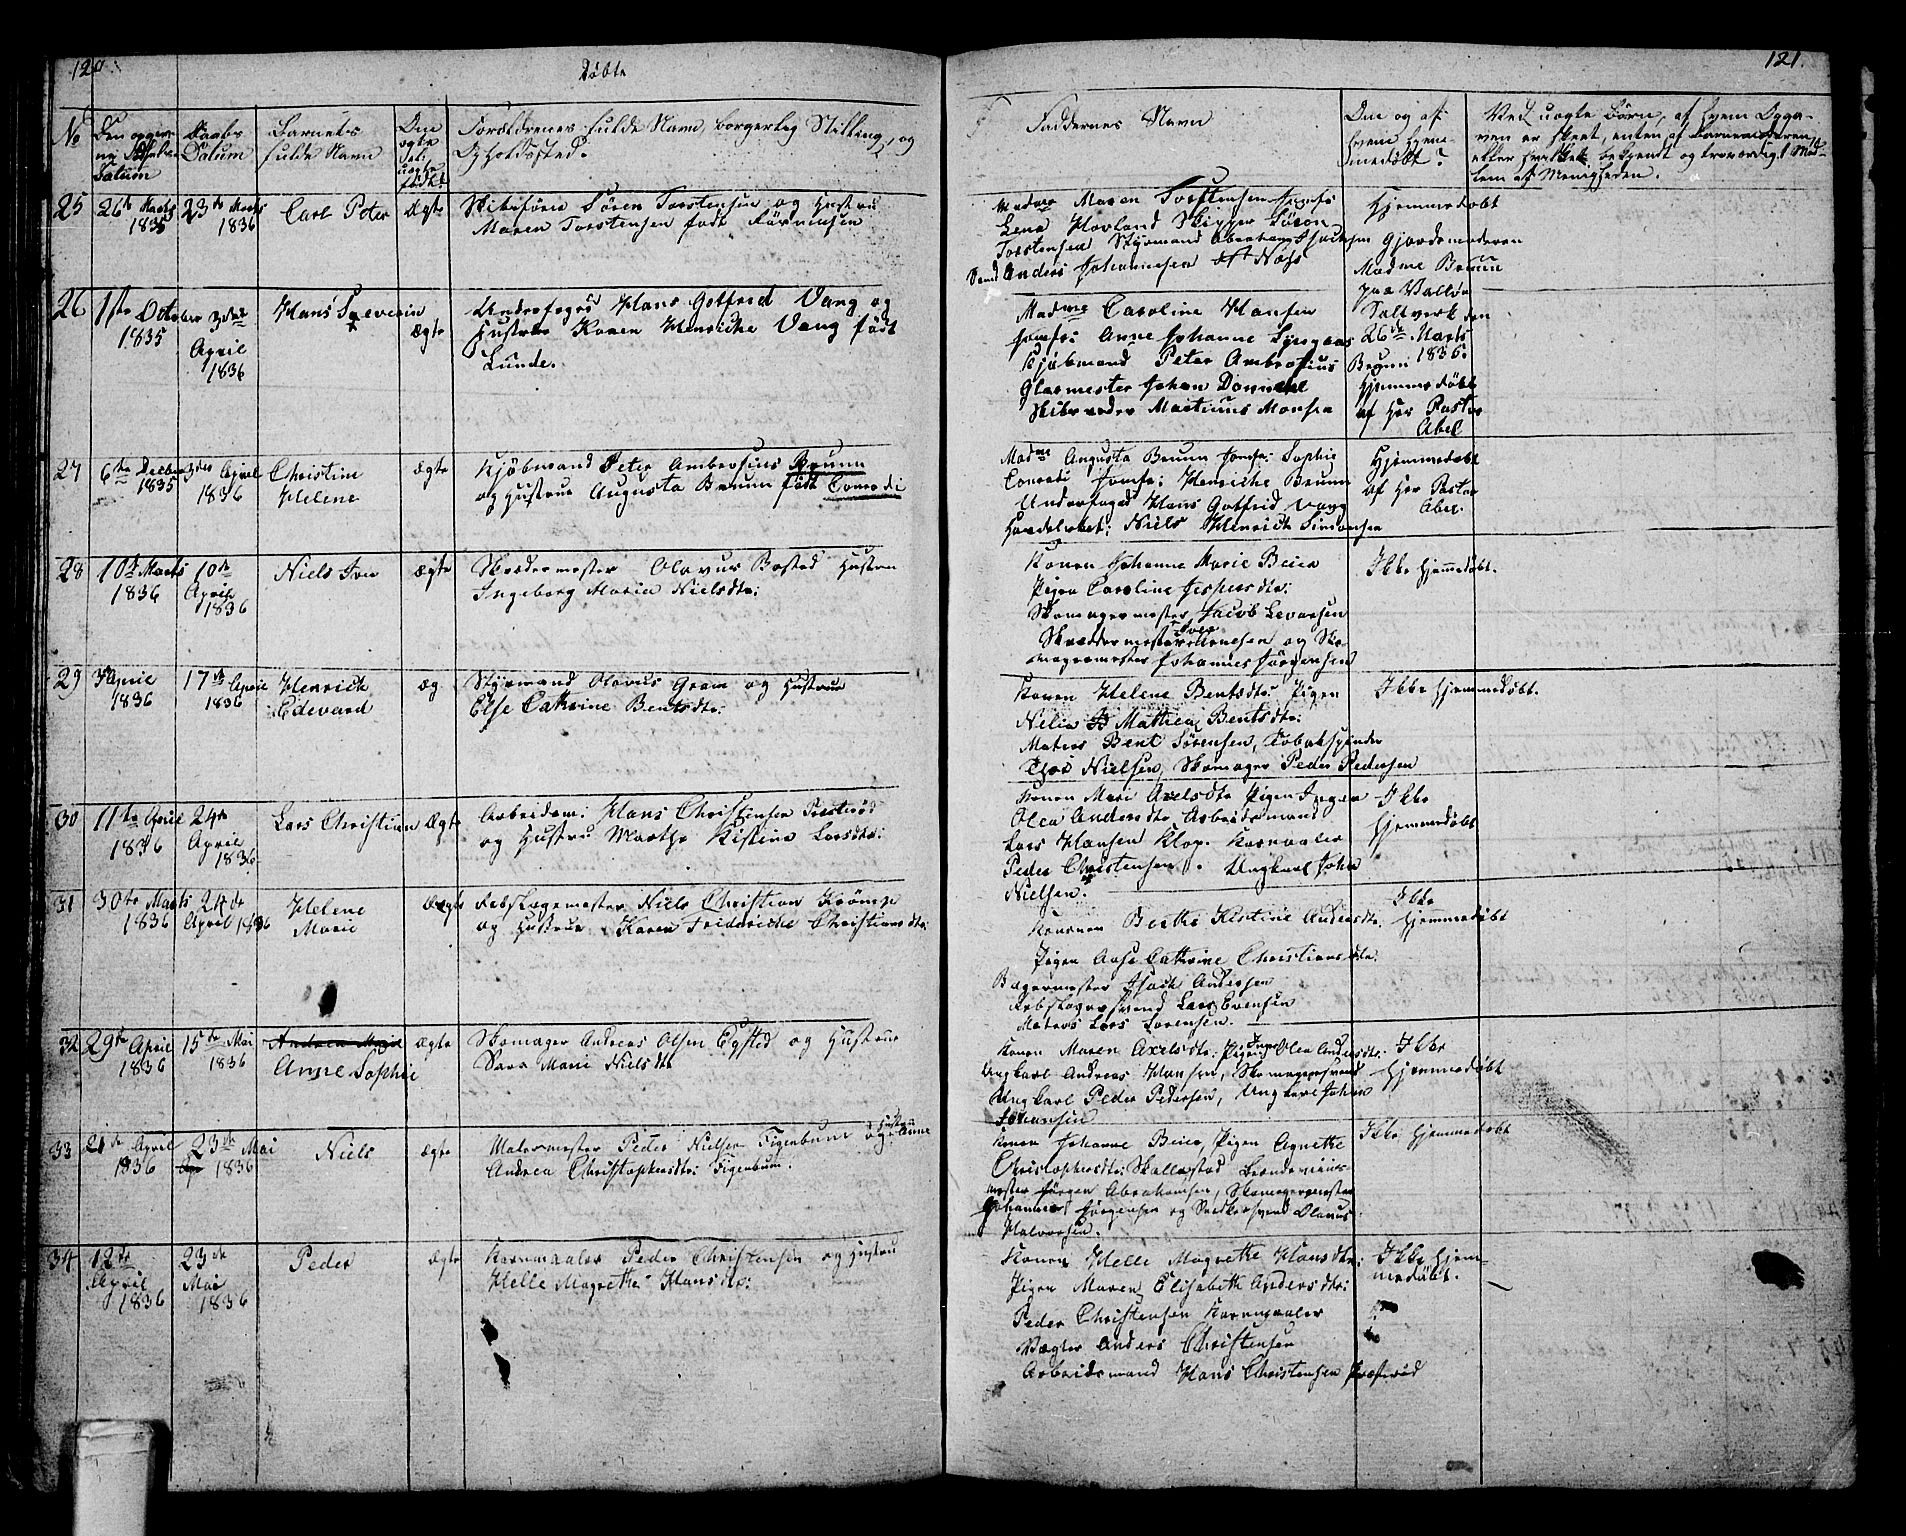 120
Døbte
No
Den opgivne Fødsels Datum
Daabs Datum
Barnets fulde Navn
Om ægte eller uægte født?
Forældrenes fulde Navn, borgerlig Stilling, og Opholdssted.
25
26de Marts 1835
23de Marts 1836
Carl Peter
ægte
Skibsfører Sören Torstensen og Hustru
Maren Torstensen født
26
1ste October 1835
3die April 1836
Hans Severin
ægte
Underfoged Hans Gotfred Vang og
Hustrue Karen Henricke Vang født
Lunde.
27
6te Decber 1835
3die April 1836
Christine Helene
ægte
Kjöbmand Peter Ambrosius Bruun
og Hustrue Augusta Bruun født Conradi
28
10de Marts 1836
10de April 1836
Niels Iver
ægte
Skrædermester Olavus Bostad Hustru
Ingeborg Maria Nielsdtr:
29
April 1836
17de April 1836
Henrich Edevard
æg
Styrmand Olavus Gram og Hustrue
Else Cathrine Bentsdtr:
30
11te April 1836
24de April 1836
Lars Christian
Ægte
Arbeidsm: Hans Christensen
og Hustru Marthe Kistine Larsdtr:
31
30te Marts 1836
24de April 1836
Helene Marie
Ægte
Rebslagermester Niels Christian Krömp
og Hustrue Karen Friderikke Christiansdtr:
32
29de April 1836
15de Mai 1836
Anne Sophie
Ægte
Skomager Andreas Olsen Eysted og Hustrue
Sara Marie Nielsdtr
33
21de April 1836
23de Mai 1836
Niels
ægte
Malermester Peder Nielsen Figenbaum og Hustru Anne
Andrea Christophersdtr: Figenbum.
34
12te April 1836
23de Mai 1836
Peder
ægte
Kornmaaler Peder Christensen og Hustru
Helle Magrethe Hansdtr:
121.
Faddernes Navn
Om og af hvem hjemmedøbt?
Ved uægte Børn, af hvem Opgaven er skeet, enten af Barnemoderen, eller bekjendt og troværdigt Medlem af Menigheden.
Madme Maren Torstensen Jomfr
Lena Hovland Skipper Sören
Torstensen Styrmand Abraham Isachsen
Anders Johannesen Næss
Hjemmedøbt
Gjordemoderen
Madme Bruun
paa Valløe
Saltverk den
26de Marts
1835.
Madme Caroline Hansen
Jomfr: Anne Johanne
Kjøbmand Peter Ambrosius Bruun
Glasmester Johan
Martinus Monsen
Hjemmedøbt
af Her Pastor
Abel
Madme Augusta Bruun Jomfr: Sophie
Conradi Jomfr: Henricke Bruun
Underfoged Hans Gotfrid Vang
Handelsbet: Niels Henrich Simonsen
Hjemmedøbt
af Her Pastor
Abel.
Konen Johanne Marie Beier
Pigen Caroline Jespersdtr:
Skomagermester Jacob Levorsen
Skræddermester Iver og Sko-
magermester Johannes Jörgensen
Ikke hjemmedøbt.
Konen Helene Bentsdtr: Pigen
Nelia Mathea Bentsdtr:
Matros Bent Sørensen, Tobakspinder
Nielsen, Skomager Peder Pedersen
Ikke hjemmedøbt.
Konen Mari Axelsdtr Pigen Inger
Olea Andersdtr Arbeidsmand
Lars Hansen Klop. Kornmaaler
Peder Christensen. Ungkarl Johan
Nielsen.
Ikke
hjemmedøbt
Konen Berthe Kistine Andersdtr.
Pigen Anse Cathrine Christiansdtr.
Bagermester Isach Andersen
Rebslagersvend Lars Evensen
Matros Lars Sorensen.
Ikke
hjemmedøbt
Konen Maren Axelsdtr: Pigen Inger Olea Andersdtr:
Ungkarl Andreas Hansen, Skomagersvend
Ungkarl Peder Pedersen, Ungkarl Johan
Johansen
Ikke
hjemmedøbt
Konen Johanne Beier, Pigen Agnette
Christophersdtr: Skallestad
mester Jörgen Abrahamsen, Skomagermester
Johannes Jörgensen og Snedkersvend Olavus
Halvorsen.
Ikke hjemmedøbt
Konen Helle Magrethe Hansdtr:
Pigen Maren Elisabeth Andersdtr:
Peder Christensen Kornmaaler
Vægter Anders Christensen
Arbeidsmand Hans Christensen
Ikke hjem-
medøbt.